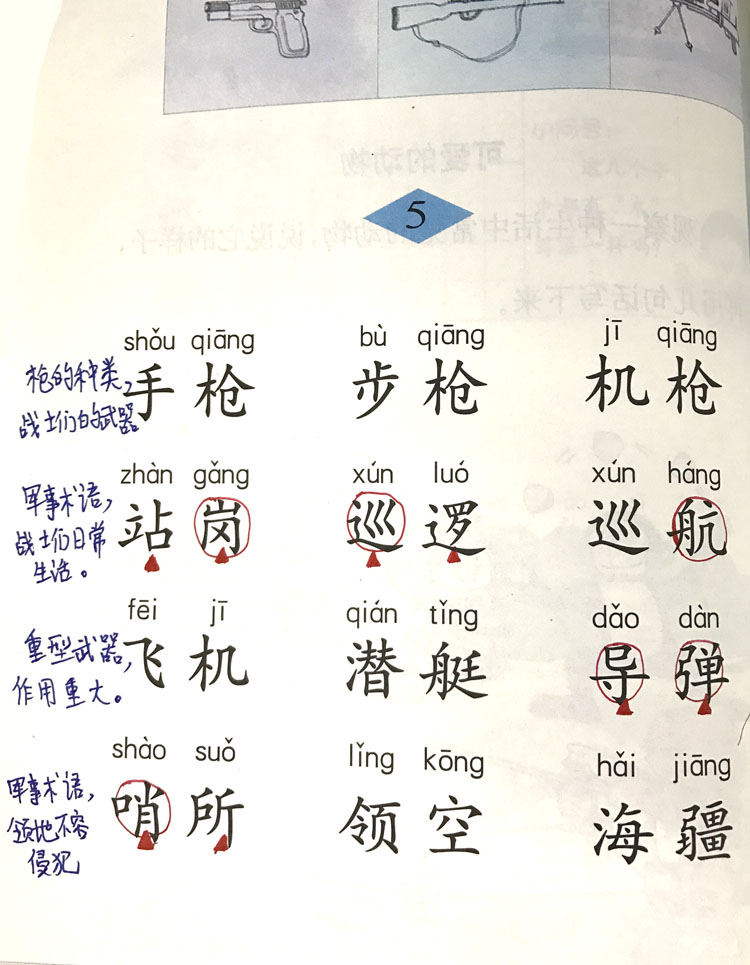 5
shǒu qiāng bù qiāng jī qiāng
枪的种类,
战士们的武器
手枪 步枪 机枪
zhàn gǎng xún luó xún háng
军事术语,
战士们日常
生活。
站岗 巡逻 巡航
fēi jī qián tǐng dǎo dàn
重型武器,
作用重大。
飞机 潜艇 导弹
shào suǒ lǐng kōng hǎi jiāng
军事术语,
领地不容
侵犯
哨所 领空 海疆